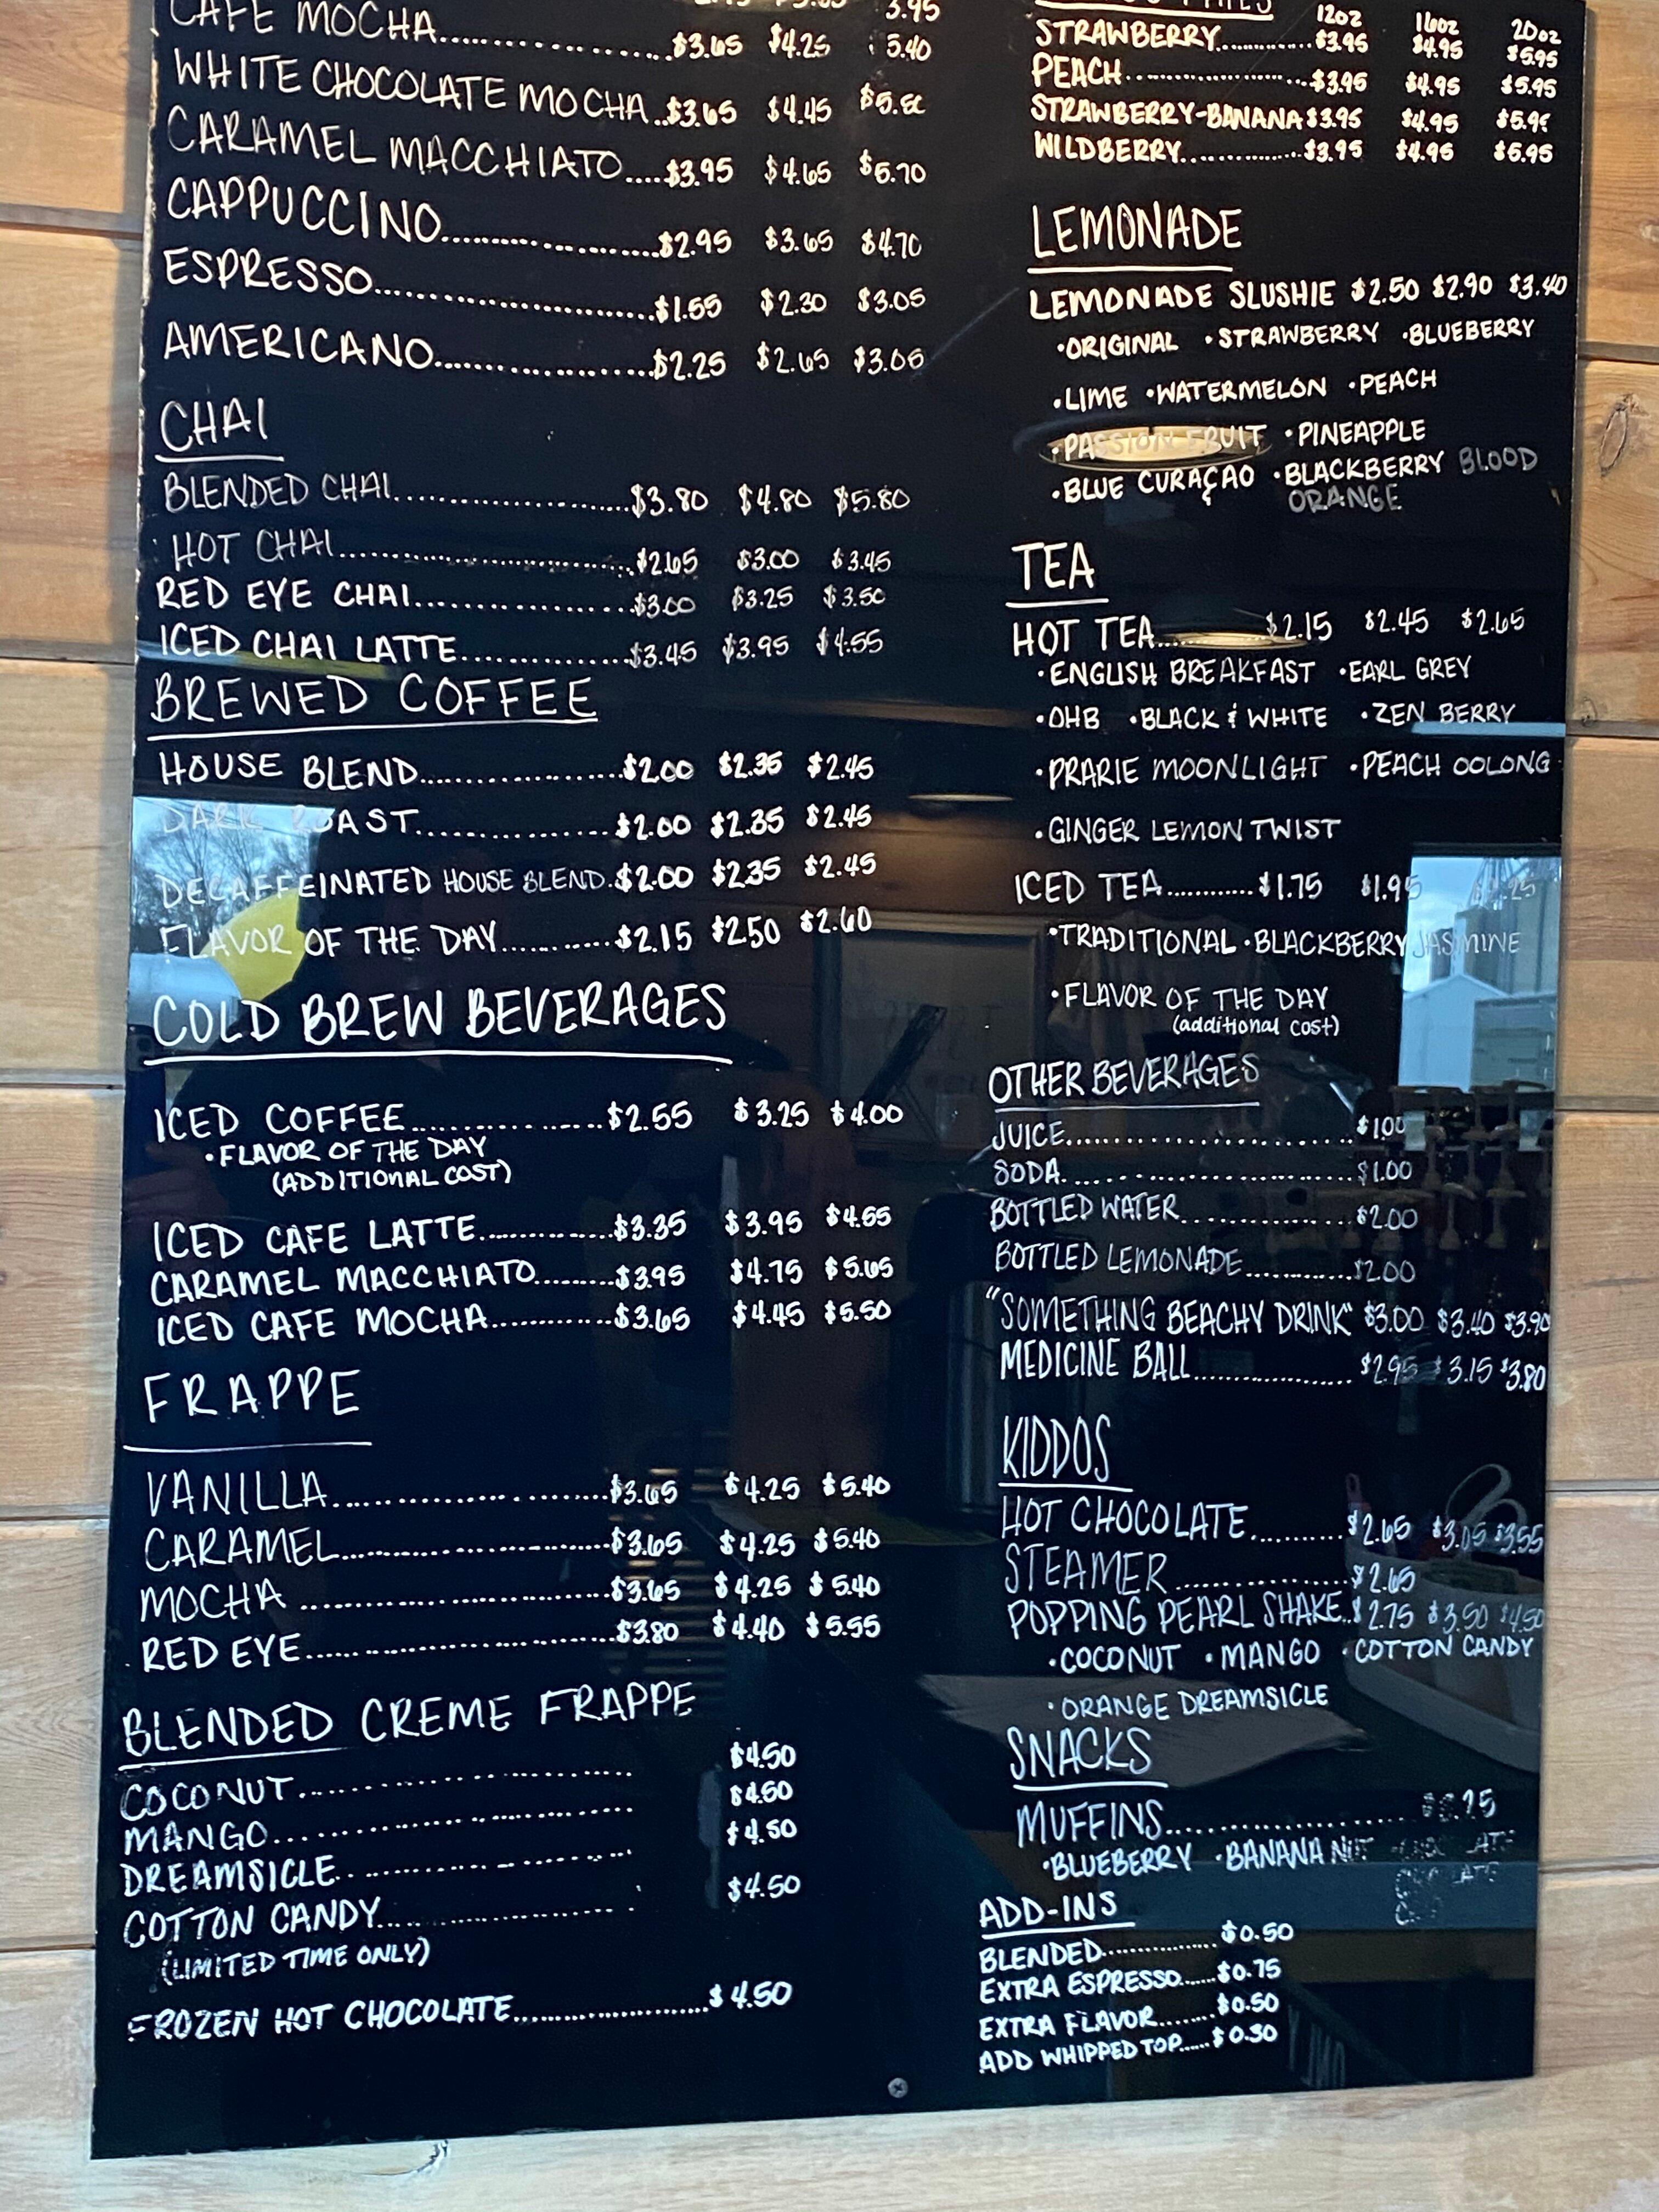 CAFE MOCHA.................$3.65 $4.25 5.40
WHITE CHOCOLATE MOCHA..$3.65 $4.45
CARAMEL MACCHIATO.....$3.95 $4.65 $5.70
CAPPUCCINO.....................$2.95 $3.65 $4.70
ESPRESSO.........................$1.55 $2.30 $3.05
AMERICANO......................$2.25 $2.65 $3.05
CHAI
BLENDED CHAI........................$3.80 $4.80 $5.80
HOT CHAI..............................$2.65 $3.00 $3.45
RED EYE CHAI.....................$3.00 $3.25 $3.50
ICED CHAI LATTE................$3.45 $3.95 $4.55
BREWED COFFEE
HOUSE BLEND...................$2.00 $2.35 $2.45
DARK ROAST...................$2.00 $2.35 $2.45
DECAFFEINATED HOUSE BLEND.$2.00 $2.35 $2.45
FLAVOR OF THE DAY...........$2.15 $2.50 $2.60
COLD BREW BEVERAGES
ICED COFFEE...................$2.55 $3.25 $4.00
•FLAVOR OF THE DAY
(ADDITIONAL COST)
ICED CAFE LATTE.............$3.35 $3.95 $4.55
CARAMEL MACCHIATO.........$3.95 $4.75 $5.65
ICED CAFE MOCHA.............$3.65 $4.45 $5.50
FRAPPE
VANILLA..........................$3.65 $4.25 $5.40
CARAMEL.........................$3.65 $4.25 $5.40
MOCHA ...........................$3.65 $4.25 $5.40
RED EYE..........................$3.80 $4.40 $5.55
BLENDED CREME FRAPPE
COCONUT.......................... $4.50
MANGO............................ $4.50
DREAMSICLE....................... $4.50
COTTON CANDY..................... $4.50
(LIMITED TIME ONLY)
FROZEN HOT CHOCOLATE...................$4.50
12oz 16oz 20oz
STRAWBERRY.............$3.95 $4.95 $5.95
PEACH......................$3.95 $4.95 $5.95
STRAWBERRY-BANANA $3.95 $4.95
WILDBERRY................$3.95 $4.95 $5.95
LEMONADE
LEMONADE SLUSHIE $2.50 $2.90 $3.40
•ORIGINAL •STRAWBERRY •BLUEBERRY
•LIME •WATERMELON •PEACH
•PASSION FRUIT •PINEAPPLE
•BLUE CURAÇAO •BLACKBERRY BLOOD
ORANGE
TEA
HOT TEA............$2.15 $2.45 $2.65
•ENGLISH BREAKFAST •EARL GREY
•OHB •BLACK & WHITE •ZEN BERRY
•PRARIE MOONLIGHT •PEACH OOLONG
•GINGER LEMON TWIST
ICED TEA...........$1.75 $1.95
•TRADITIONAL •BLACKBERRY JASMINE
•FLAVOR OF THE DAY
(additional cost)
OTHER BEVERAGES
JUICE..............................$1.00
SODA..............................$1.00
BOTTLED WATER..................$2.00
BOTTLED LEMONADE.............$2.00
"SOMETHING BEACHY DRINK" $3.00 $3.40 $3.90
MEDICINE BALL.................$2.95 $3.15 $3.80
KIDDOS
HOT CHOCOLATE..........$2.65 $3.05 $3.55
STEAMER..................$2.65
POPPING PEARL SHAKE..$2.75 $3.50 $4.50
•COCONUT •MANGO •COTTON CANDY
•ORANGE DREAMSICLE
SNACKS
MUFFINS.......................
•BLUEBERRY •BANANA NUT
ADD-INS
BLENDED................$0.50
EXTRA ESPRESSO......$0.75
EXTRA FLAVOR........$0.50
ADD WHIPPED TOP.....$0.30